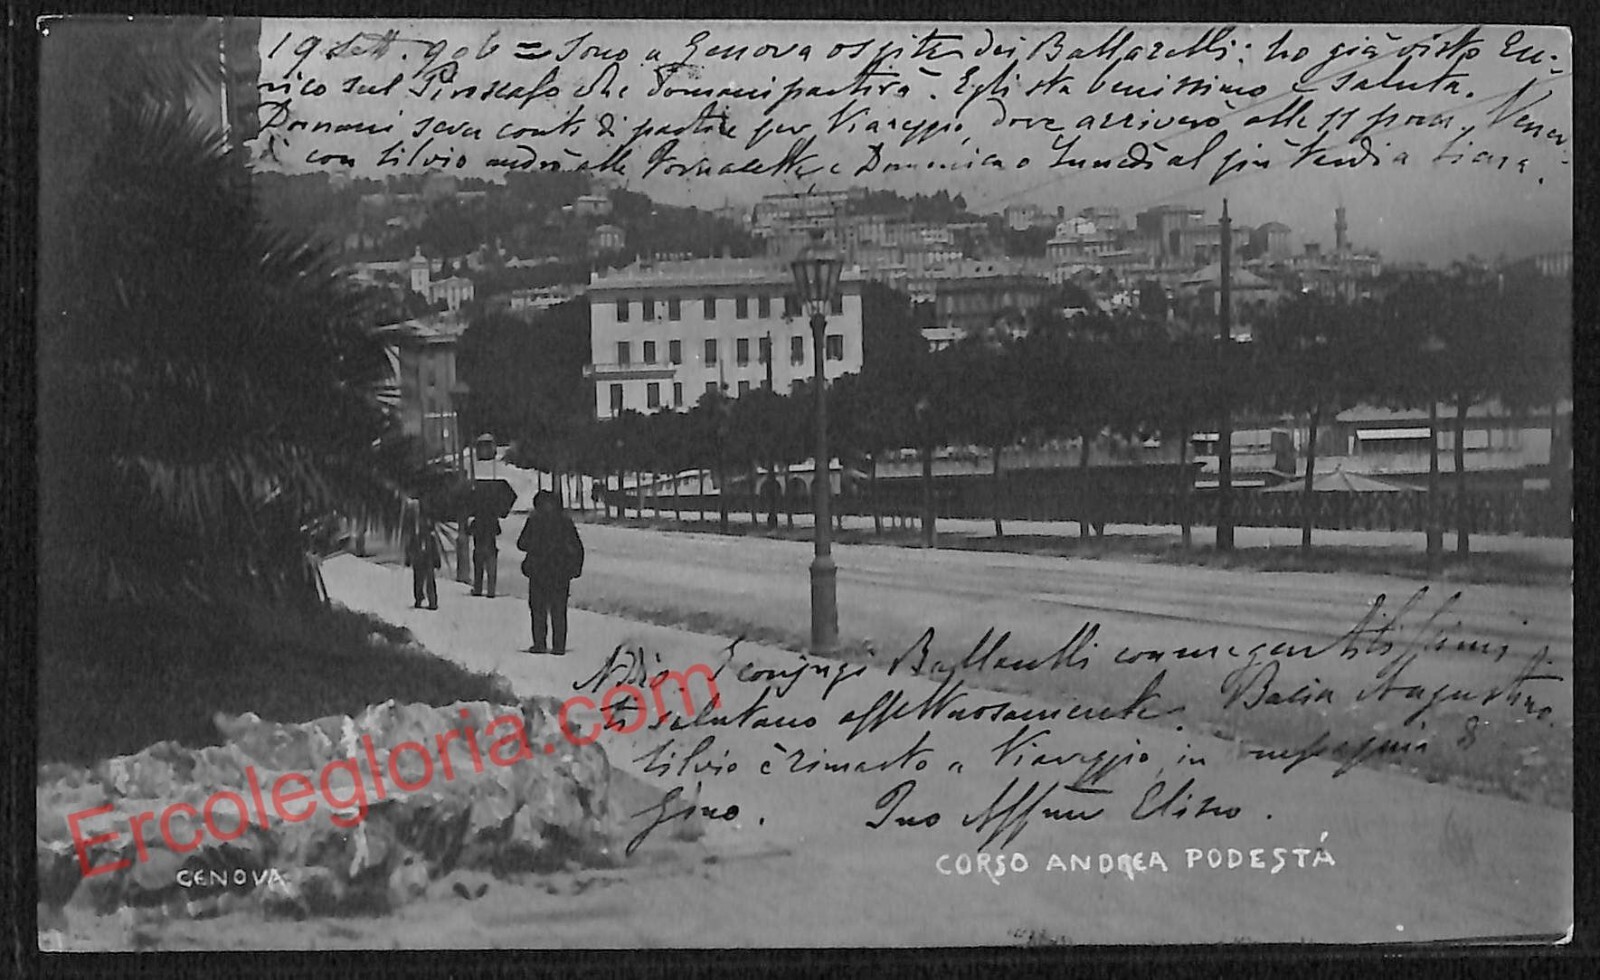 19 Sett. 906 = Sono a Genova ospite dei Ballarelli: ho già visto En-
rico sul Piroscafo che domani partirà. Egli sta benissimo e saluta.
Domani sera conto di partire per Viareggio, dove arriverò alle 11 pom. Vener-
dì con Silvio andrò alle e Domenica o Lunedì al più tardi a
Addio. I coniugi Ballarelli
ti salutano affettuosamente. Bacia Agustino.
Silvio è rimasto a Viareggio in compagnia di
Gino. Tuo Affmo Eliseo.
Ercolegloria.com
GENOVA
CORSO ANDREA PODESTÀ